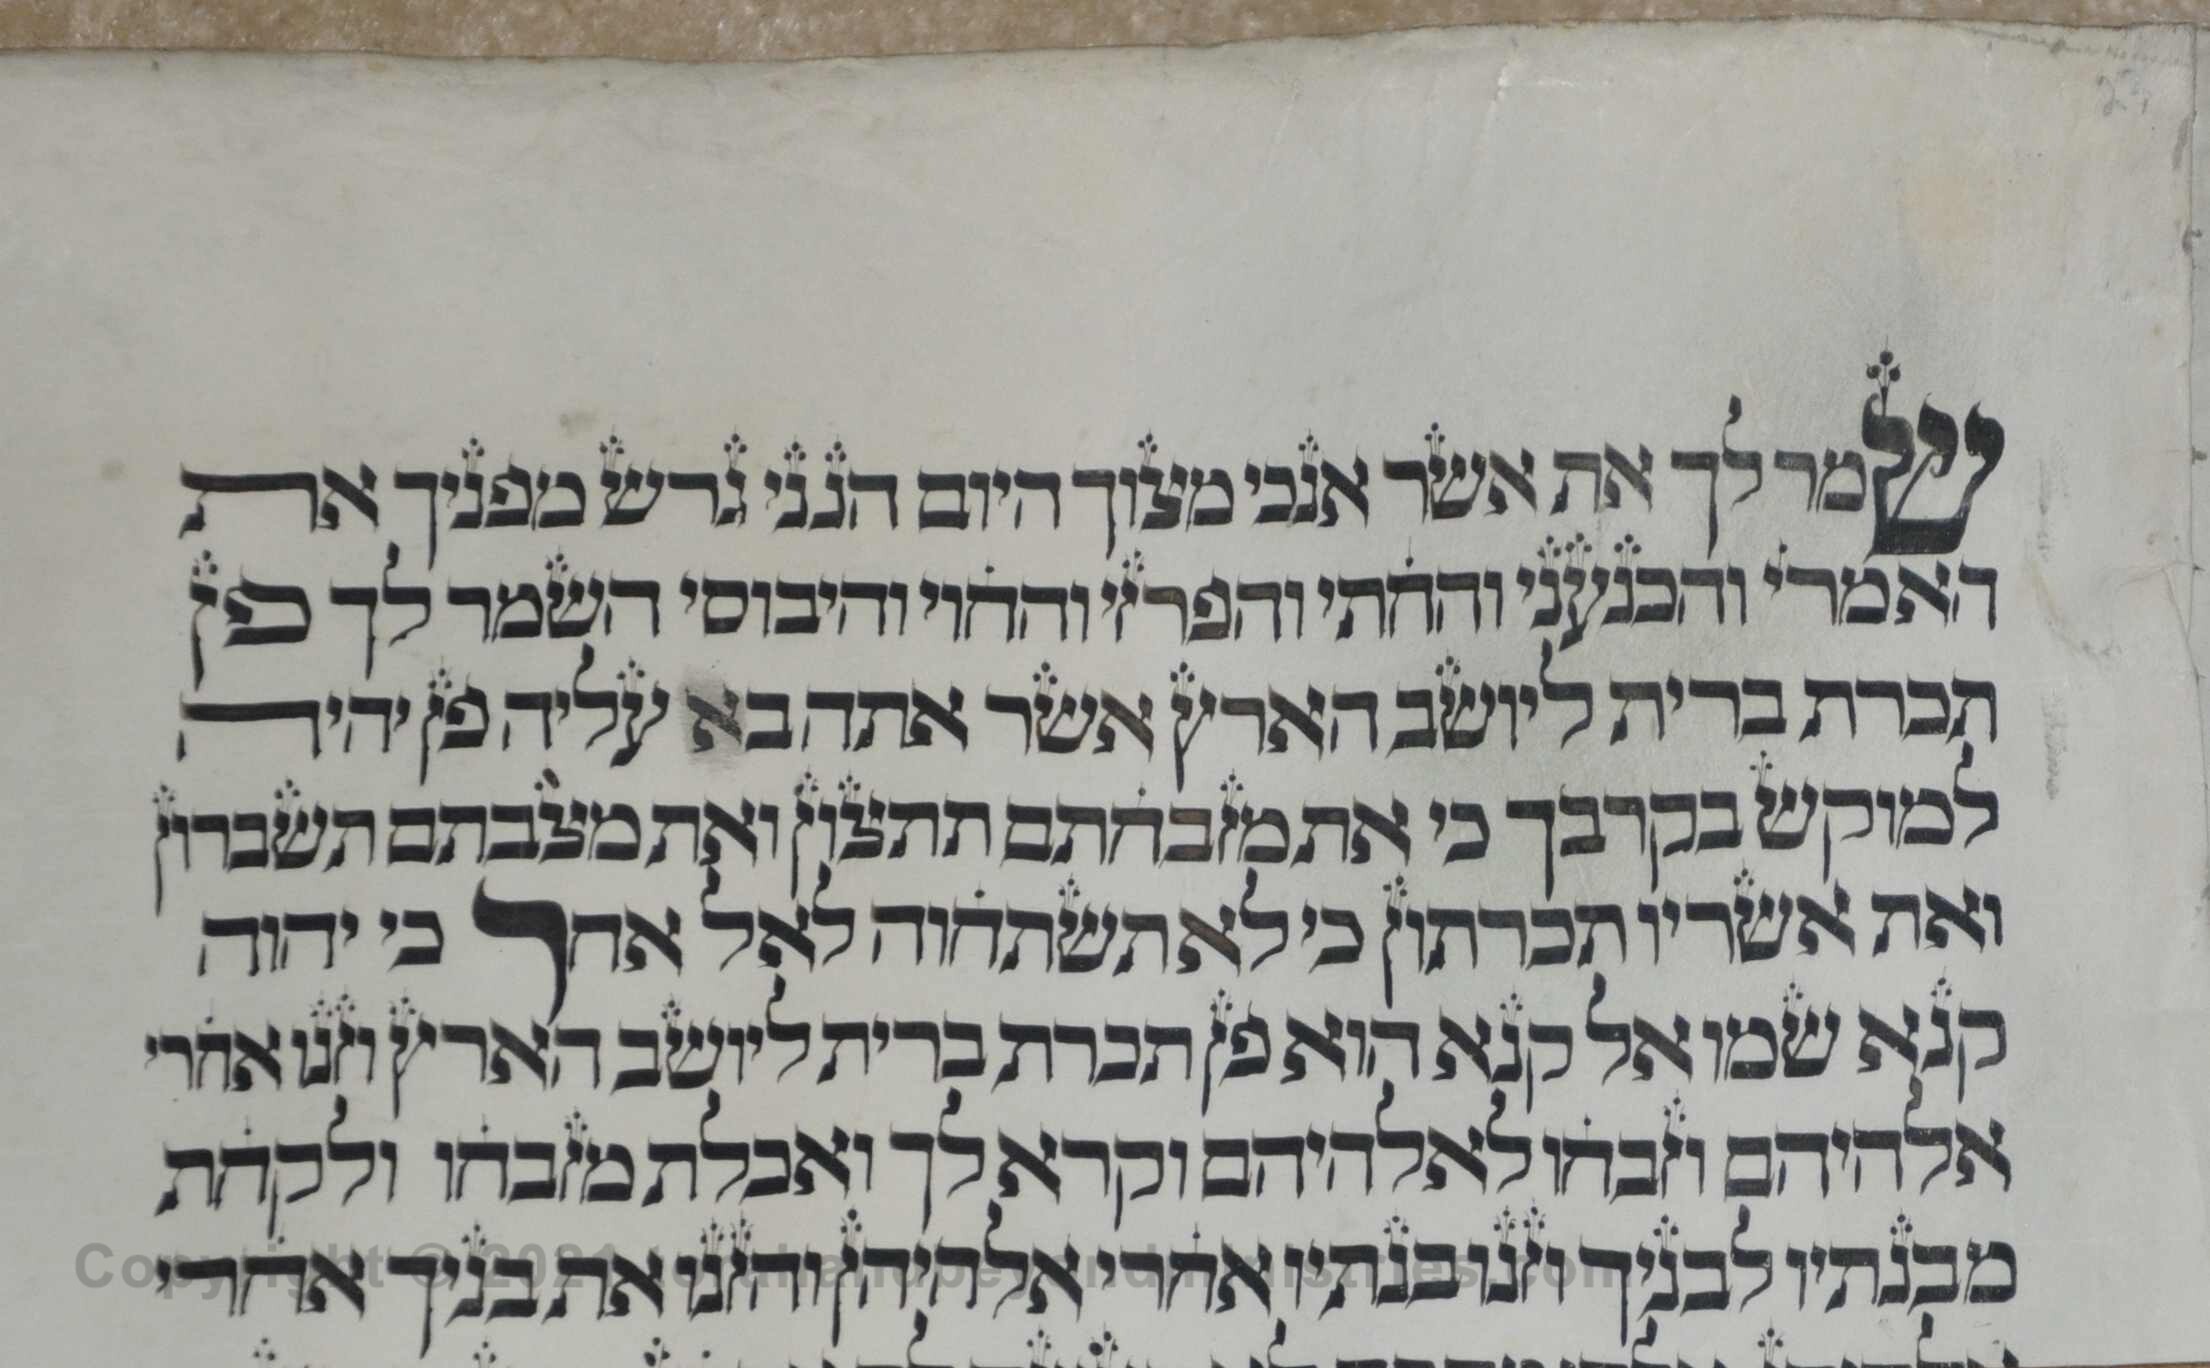 שמר לך את אשר אנכי מצוך היום הנני גרש מפניך את
האמרי והכנעני והחתי והפרזי והחוי והיבוסי השמר לך פן
תכרת ברית ליושב הארץ אשר אתה בא עליה פן יהיה
למוקש בקרבך כי את מזבחתם תתצון ואת מצבתם תשברון
ואת אשריו תכרתון כי לא תשתחוה לאל אחר כי יהוה
קנא שמו אל קנא הוא פן תכרת ברית ליושב הארץ וזנו אחרי
אלהיהם וזבחו לאלהיהם וקרא לך ואכלת מזבחו ולקחת
מבנתיו לבניך וזנו בנתיו אחרי אלהיהן והזנו את בניך אחרי
Copyright © 2021